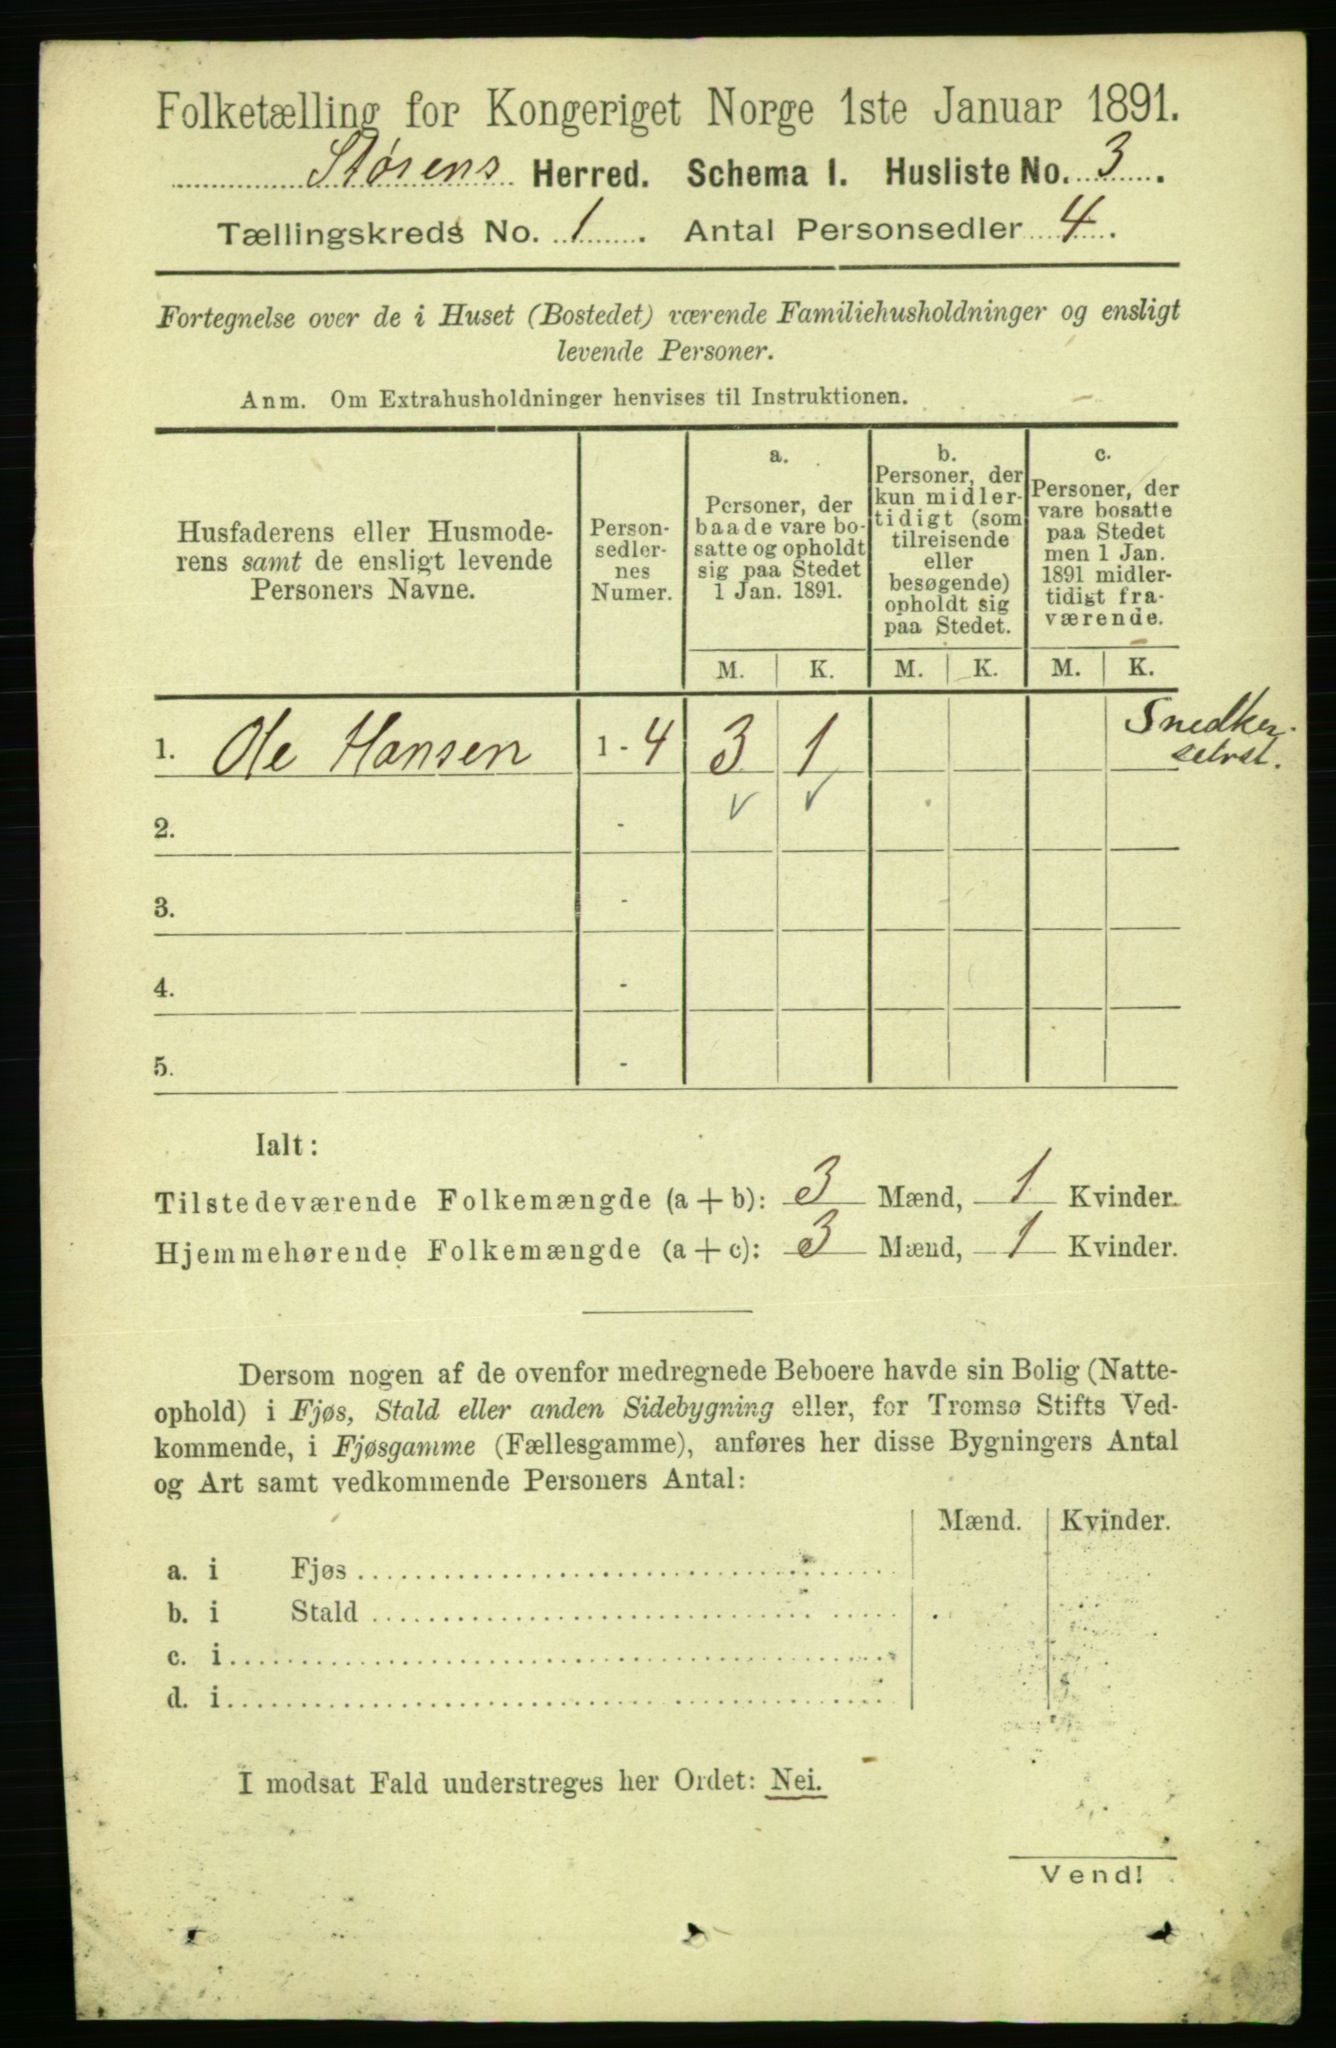 Folketælling for Kongeriget Norge 1ste Januar 1891.
Størens Herred. Schema 1. Husliste No. 3.
Tællingskreds No. 1. Antal Personsedler 4.
Fortegnelse over de i Huset (Bostedet) værende Familiehusholdninger og ensligt
levende Personer.
Anm. Om Extrahusholdninger henvises til Instruktionen.
Husfaderens eller Husmode-
rens samt de ensligt levende
Personers Navne.
Person-
sedler-
nes
Numer.
a.
Personer, der
baade vare bo-
satte og opholdt
sig paa Stedet
1 Jan. 1891.
b.
Personer, der
kun midler-
tidigt (som
tilreisende
eller
besøgende)
opholdt sig
paa Stedet.
c.
Personer, der
vare bosatte
paa Stedet
men 1 Jan.
1891 midler-
tidigt fra-
værende.
M. K. M. K. M. K.
1. Ole Hansen 1-4 3 1 Snedker.
selvst.
2. -
3. -
4. -
5. -
Ialt:
Tilstedeværende Folkemængde (a+b): 3 Mænd, 1 Kvinder.
Hjemmehørende Folkemængde (a+c): 3 Mænd, 1 Kvinder.
Dersom nogen af de ovenfor medregnede Beboere havde sin Bolig (Natte-
ophold) i Fjøs, Stald eller anden Sidebygning eller, for Tromsø Stifts Ved-
kommende, i Fjøsgamme (Fællesgamme), anføres her disse Bygningers Antal
og Art samt vedkommende Personers Antal:
Mænd. Kvinder.
a. i Fjøs
b. i Stald
c. i
d. i
I modsat Fald understreges her Ordet: Nei.
Vend!